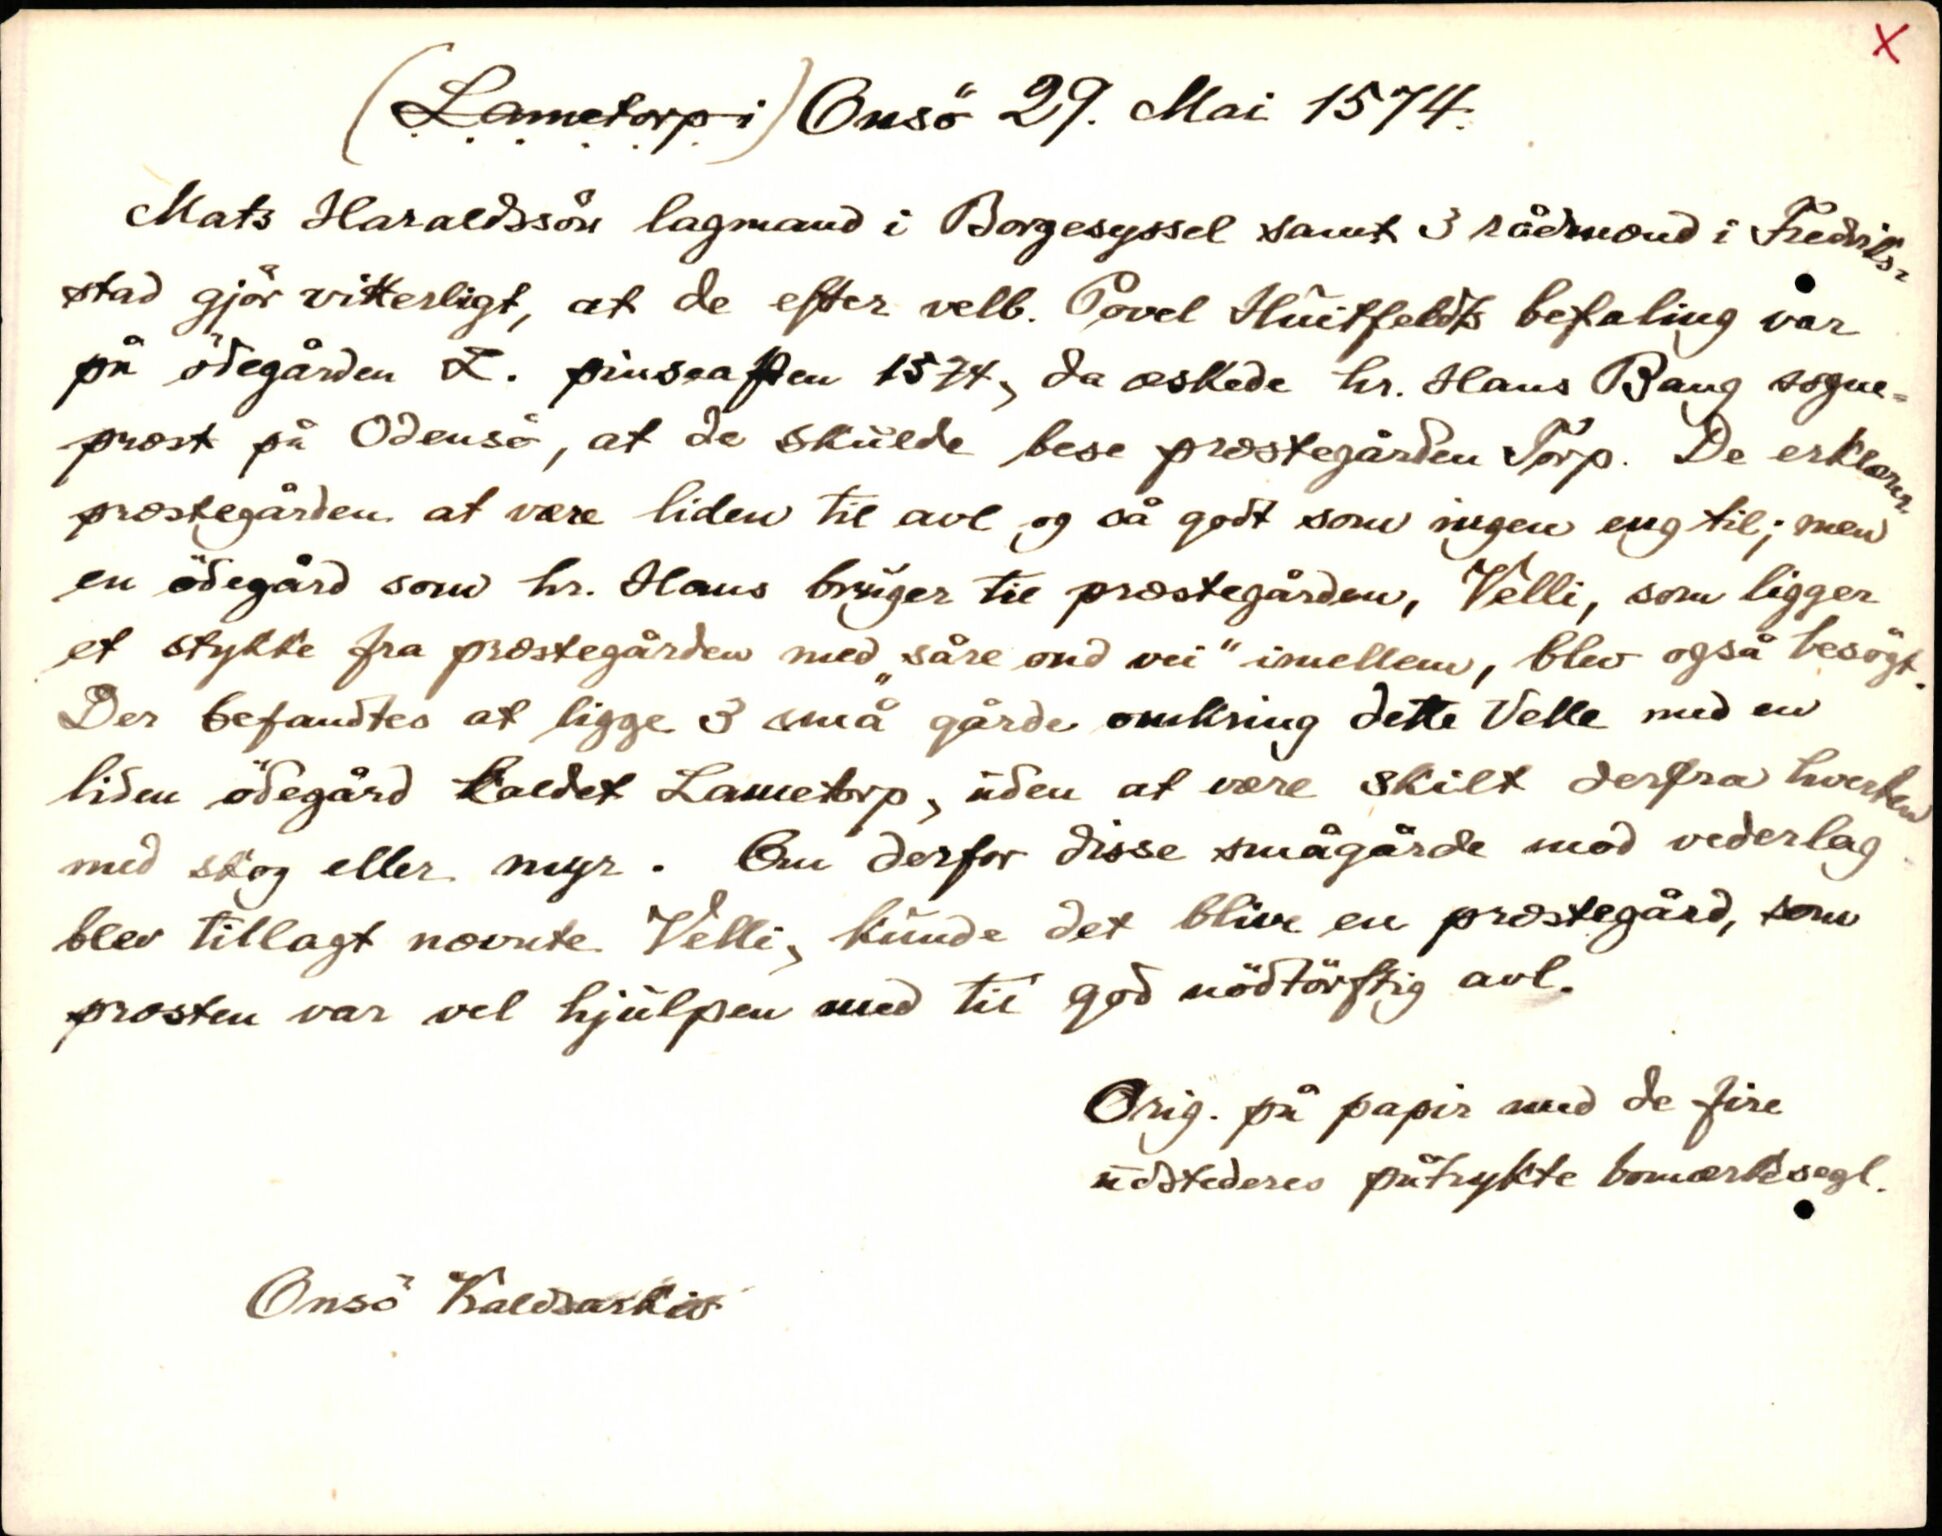 X
(Lametorp i) Onsö 29. Mai 1574.
Mats Haraldssön lagmand i Borgesyssel samt 3 rådmænd i Fredriks-
stad gjör vitterligt, at de efter velb. Povel Huitfeldts befaling var
på ödegården L. pinseaften 1574, da æskede hr. Hans Bang sogne-
prest på Odensö, at de skulde bese præstegården Torp. De erklærer
præstegården at være liden til avl og så godt som ingen eng til; men
en ödegård som hr. Hans bruger til præstegården, Velli, som ligger
et stykke fra præstegården med "såre ond vei" imellem, blev også besögt.
Der befandtes at ligge 3 "små" gårde omkring dette Velle med en
liden ödegård kaldet Lametorp, uden at være skilt derfra hverken
med skog eller myr. Om derfor disse smågårde mod vederlag
blev tillagt nævnte Velli, kunde det blive en præstegård, som
præsten var vel hjulpen med til god nödtörftig avl.
Orig. på papir med de fire
udstederes påtrykte bomærkesegl.
Onsö Kaldsarkiv